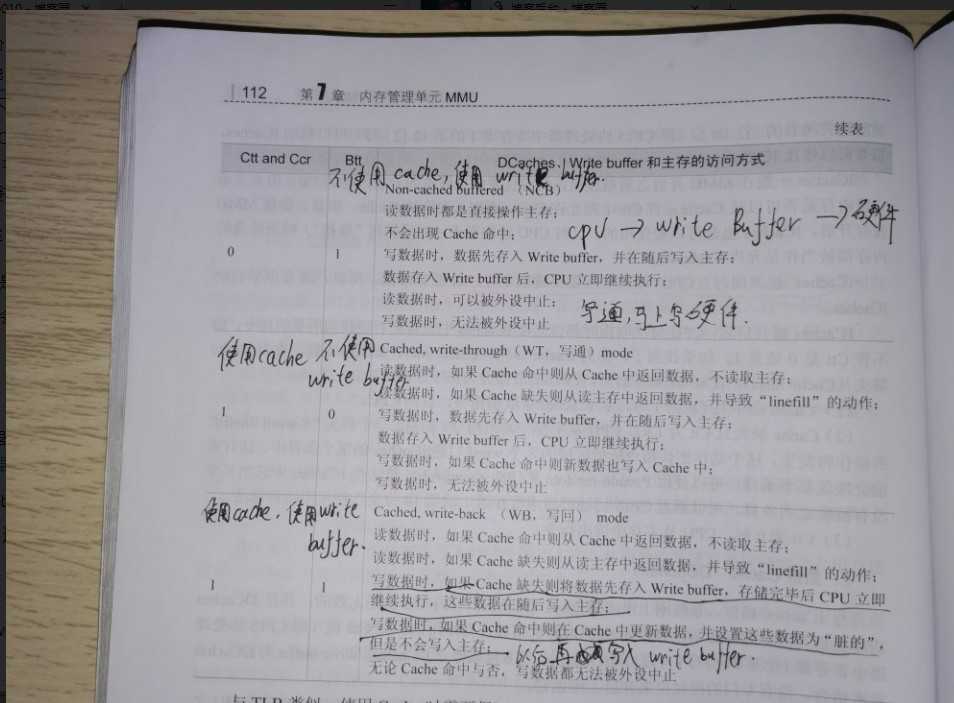 112 第7章 内存管理单元 MMU
续表
Ctt and Ccr Btt DCaches、Write buffer 和主存的访问方式
不使用 cache, 使用 write buffer.
Non-cached buffered （NCB）
读数据时都是直接操作主存；
不会出现 Cache 命中；
cpu → write Buffer → 硬件
0 1 写数据时，数据先存入 Write buffer，并在随后写入主存；
数据存入 Write buffer 后，CPU 立即继续执行；
读数据时，可以被外设中止；
写数据时，无法被外设中止
写通，马上写硬件.
使用cache 不使用
write buffer
Cached, write-through（WT，写通）mode
读数据时，如果 Cache 命中则从 Cache 中返回数据，不读取主存；
读数据时，如果 Cache 缺失则从读主存中返回数据，并导致“linefill”的动作；
1 0 写数据时，数据先存入 Write buffer，并在随后写入主存；
数据存入 Write buffer 后，CPU 立即继续执行；
写数据时，如果 Cache 命中则新数据也写入 Cache 中；
写数据时，无法被外设中止
使用cache. 使用write
buffer.
Cached, write-back （WB，写回） mode
读数据时，如果 Cache 命中则从 Cache 中返回数据，不读取主存；
读数据时，如果 Cache 缺失则从读主存中返回数据，并导致“linefill”的动作；
1 1 写数据时，如果 Cache 缺失则将数据先存入 Write buffer，存储完毕后 CPU 立即
继续执行，这些数据在随后写入主存；
写数据时，如果 Cache 命中则在 Cache 中更新数据，并设置这些数据为“脏的”，
但是不会写入主存； 以后再写入 write buffer.
无论 Cache 命中与否，写数据都无法被外设中止